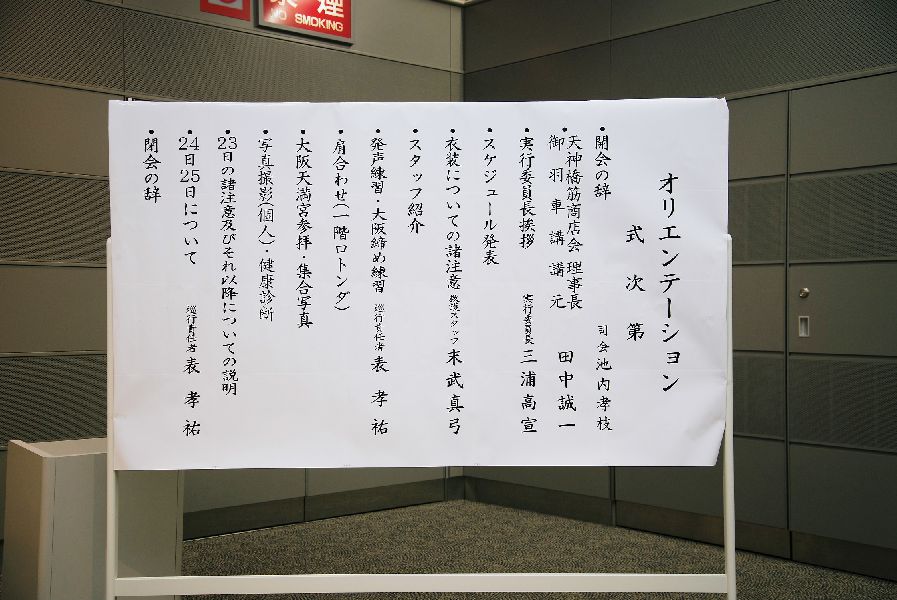 禁煙
NO SMOKING
オリエンテーション
式次第
・開会の辞 司会 池内孝枝
・天神橋筋商店会 理事長
御羽車講 講元 田中誠一
・実行委員長挨拶 実行委員長 三浦高宣
・スケジュール発表
・衣装についての諸注意 救護スタッフ 末武真弓
・スタッフ紹介
・発声練習・大阪締め練習 巡行責任者 表孝祐
・肩合わせ(一階ロトンダ)
・大阪天満宮参拝・集合写真
・写真撮影(個人)・健康診断
・23日の諸注意及びそれ以降についての説明
・24日25日について 巡行責任者 表孝祐
・閉会の辞